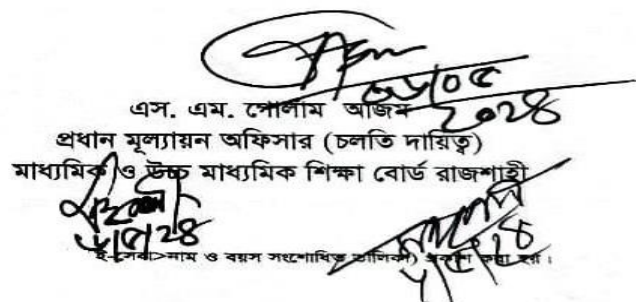 ০৬/০৫
২০২৪
এস. এম. গোলাম আজম
প্রধান মূল্যায়ন অফিসার (চলতি দায়িত্ব)
মাধ্যমিক ও উচ্চ মাধ্যমিক শিক্ষা বোর্ড রাজশাহী
৬/৫/২৪
৬/৫/২৪
ই-সেবা>নাম ও বয়স সংশোধিত তালিকা) প্রকাশ করা হয়।